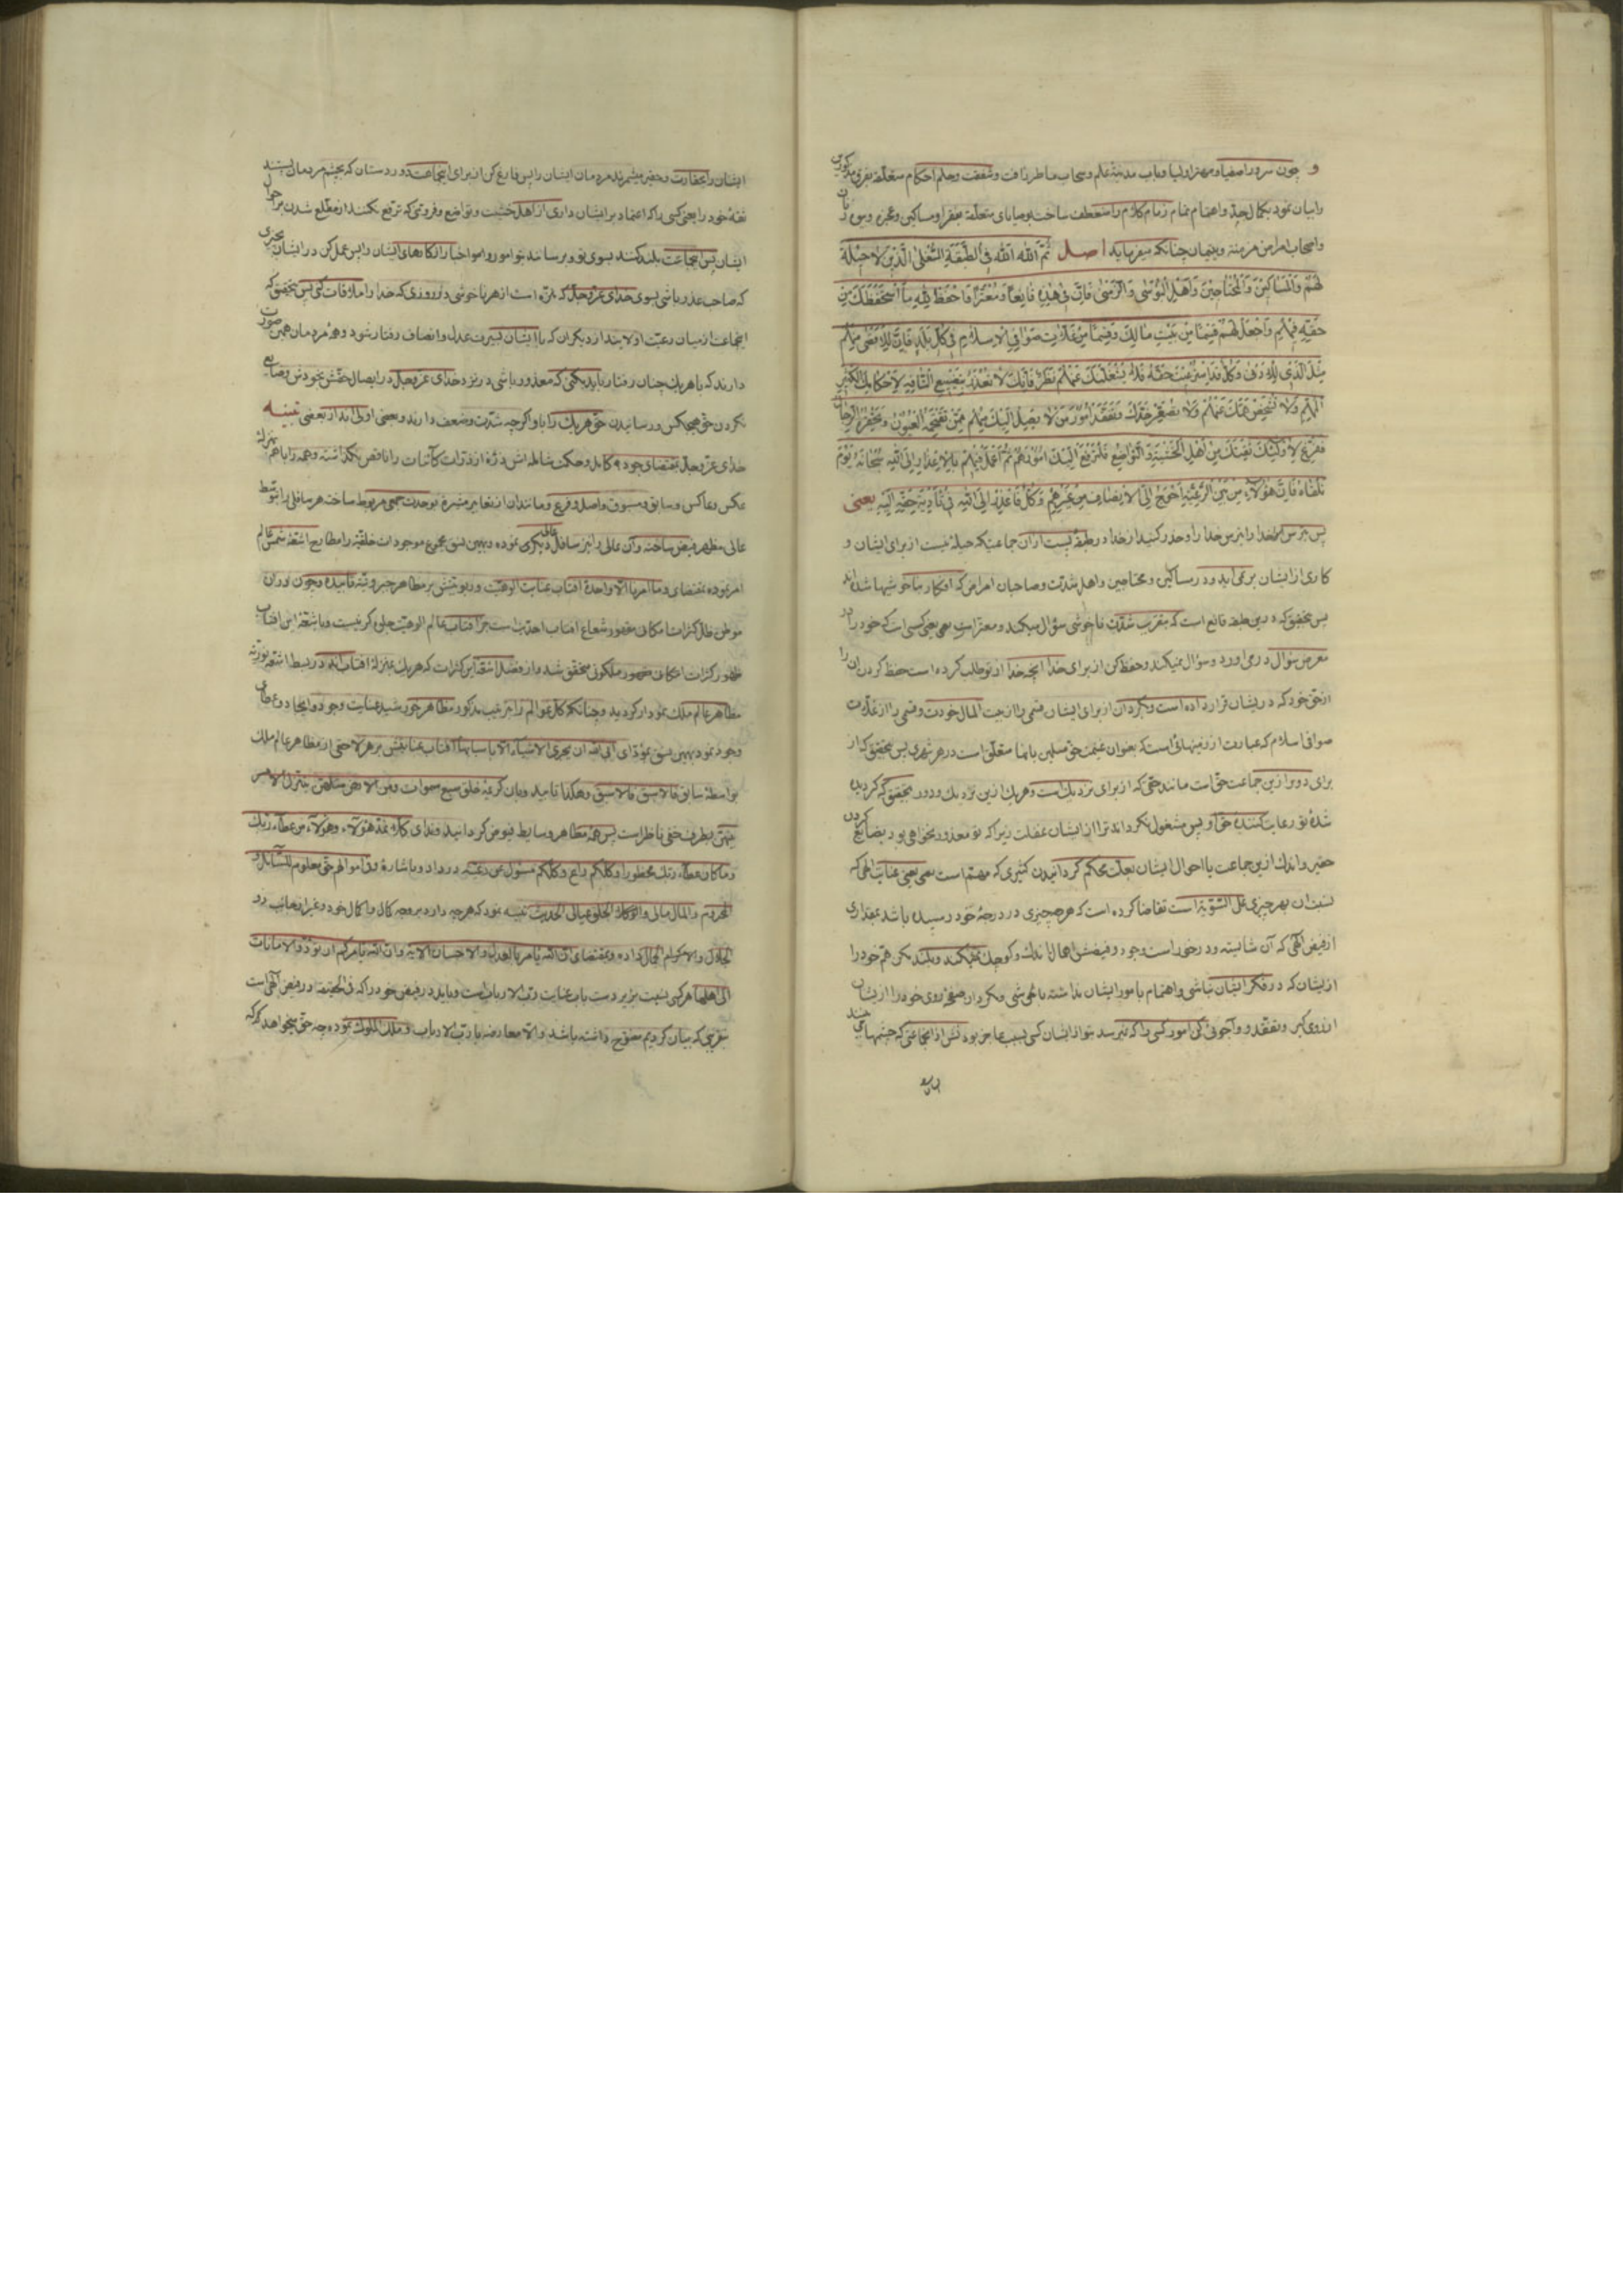 و چون سرور اصفیا و مهتر اولیا و باب مدینه علم و سحاب ماطر رافت و شفقت و حلم احکام متعلقه بفرق مذکورین
را بیان نمود بکمال جد و اهتمام تمام زمام کلام را منعطف ساخت بوصایای متعلقه بفقرا و مساکین و عجزه و
و اصحاب امراض مزمنه و یتیمان چنانکه میفرماید اصل ثُمَّ اللّٰهَ اللّٰهَ فِی الطَّبَقَةِ السُّفْلٰی الَّذِینَ لَا حِیلَةَ
لَهُمْ وَالْمَسَاکِینِ وَالْمُحْتَاجِینَ وَاَهْلِ الْبُؤْسٰی وَالزَّمْنٰی فَاِنَّ فِی هٰذِهِ قَانِعاً وَمُعْتَرّاً فَاحْفَظْ لِلّٰهِ مَا اسْتَحْفَظَکَ مِنْ
حَقِّهِ فِیهِمْ وَاجْعَلْ لَهُمْ قِسْماً مِنْ بَیْتِ مَالِکَ وَقِسْماً مِنْ غَلَّاتِ صَوَافِی الْاِسْلَامِ فِی کُلِّ بَلَدٍ فَاِنَّ لِلْاَقْصٰی مِنْهُمْ
مِثْلَ الَّذِی لِلْاَدْنٰی وَکُلٌّ قَدِ اسْتُرْعِیتَ حَقَّهُ فَلَا یَشْغَلَنَّکَ عَنْهُمْ نَظَرٌ فَاِنَّکَ لَا تُعْذَرُ بِتَضْیِیعِ التَّافِهِ لِاَحْکَامِکَ الْکَثِیرَ
الْمُهِمَّ وَلَا تُشْخِصْ هَمَّکَ عَنْهُمْ وَلَا تُصَعِّرْ خَدَّکَ وَتَفَقَّدْ اُمُورَ مَنْ لَا یَصِلُ اِلَیْکَ مِنْهُمْ مِمَّنْ تَقْتَحِمُهُ الْعُیُونُ وَتَحْقِرُهُ الرِّجَالُ
فَفَرِّغْ لِاُولٰئِکَ ثِقَتَکَ مِنْ اَهْلِ الْخَشْیَةِ وَالتَّوَاضُعِ فَلْیَرْفَعْ اِلَیْکَ اُمُورَهُمْ ثُمَّ اعْمَلْ فِیهِمْ بِالْاِعْذَارِ اِلَی اللّٰهِ سُبْحَانَهُ یَوْمَ
تَلْقَاهُ فَاِنَّ هٰؤُلَاءِ مِنْ بَیْنِ الرَّعِیَّةِ اَحْوَجُ اِلَی الْاِنْصَافِ مِنْ غَیْرِهِمْ وَکُلٌّ فَاَعْذِرْ اِلَی اللّٰهِ فِی تَأْدِیَةِ حَقِّهِ اِلَیْهِ یعنی
پس بترس خدا را بترس خدا را و حذر کنید از خدا در طبقه پست از آن جماعتیکه حیلهٔ نیست از برای ایشان و
کاری از ایشان برنمی‌آید و در مساکین و محتاجین و اهل شدت و صاحبان امراض که افکار ناخوشیها شده‌اند
پس بتحقیق که درین طبقه قانع است که بتقریب شدت ناخوشی سؤال میکند و معتر است یعنی کسی است که خود را در
معرض سؤال درمی‌آورد و سؤال نمیکند و حفظ کن از برای خدا آنچه خدا از تو طلب کرده است حفظ کردن آن را
از حق خود که در ایشان قرار داده است و بگردان از برای ایشان قسمی را از بیت المال خودت و قسمی را از غلات
صوافی اسلام که عبارت از زمینهائی است که بعنوان غنیمت حق مسلمین بآنها متعلق است در هر شهری پس بتحقیق که از
برای دورتر ازین جماعت حق است مانند حقی که از برای نزدیک است و هر یک ازین نزدیک و دور بتحقیق که گردیده
شدهٔ تو رعایت کننده حق او پس مشغول نگرداند ترا از ایشان غفلت زیرا که تو معذور نخواهی بود بضایع کردن
حقیر و اندک ازین جماعت یا احوال ایشان بعلت محکم گردانیدن کثیری که مهتم است یعنی عنایت الهی که
نسبت آن بهر چیزی علی السّویّه است تقاضا کرده است که هر چیزی در درجهٔ خود رسیده باشد بمقداری
از فیض الهی که آن شایسته و در خور است وجود و فیضش اهمال اندک و کوچک نمیکند و بلند مکن هم خود را
از ایشان که در فکر ایشان نباشی و اهتمام بامور ایشان نداشته باشی و مگردان صفحهٔ روی خود را از ایشان
از روی کبر و تفقد و واجوئی کن امور کسی را که نمیرسد بتو از ایشان کسی بسبب عاجز بودنش از آنجماعتی که چشمهای
ایشان
ایشان را بحقارت و حقیر میشمرند مردمان ایشان را پس فارغ کن از برای اینجماعت دور دستان که بچشم مردمان پستند
ثقهٔ خود را یعنی کسی را که اعتماد بر ایشان داری از اهل خشیت و تواضع و فروتنی که ترفع نکنند از مطلع شدن بر احوال
ایشان پس اینجماعت بلند کنند بسوی تو و برسانند بتو امور و اخبار و کارهای ایشان را پس عمل کن در ایشان بنحوی
که صاحب عذر باشی بسوی خدای عز و جل که منزه است از هر ناخوشی در روزی که خدا را ملاقات کنی پس بتحقیق که
اینجماعت از میان رعیت اولایند از دیگران که با ایشان بسیرت عدل و انصاف رفتار شود و همه مردمان همین صورت
دارند که با هر یک چنان رفتار باید بکنی که معذور باشی در نزد خدای عز و جل در ایصال حقش بخودش و ضایع
نکردن حق هیچکس و رسانیدن حق هر یک را باو اگر چه شدت و ضعف دارند و بعضی اولی‌اند از بعضی تنبیه
خدای عز و جل بمقتضای جود کامل و حکمت شامله‌اش ذرهٔ از ذرات کاینات را ناقص نگذاشته و همه را باهم بمنزلهٔ
عکس و عاکس و سابق و مسبوق و اصل و فرع و مانند آن از تعابیر متبره بوحدت جمعی مربوط ساخته هر سافلی را بتوسط
عالی مظهر فیض ساخته و آن عالی را نیز سافل عالی دیگری نموده و بهمین نسق مجموع موجودات خلقیه را مطارح اشعهٔ شمس عالم
امر نموده بمقتضای و ما امرنا الا واحدة آفتاب عنایت الوهیت و ربوبیتش بر مظاهر جبروتیه تابیده و چون در آن
موطن ظلال کثرات امکانی مقهور شعاع آفتاب احدیت است جز آفتاب عالم الوهیت جلوه‌گر نیست و باشعهٔ این آفتاب
ظهور کثرات امکانی ملکوتی متحقق شد و از فضل اشعهٔ این کثرات که هر یک بمنزلهٔ آفتاب‌اند در بسط اشعه
مظاهر عالم ملک نمودار گردید و چنانکه کل عوالم را بترتیب مذکور مظاهر خورشید عنایت وجود و ایجاد و اعطای
وجود نمود بهمین نسق بمؤدای ابی الله ان یجری الاشیاء الا باسبابها آفتاب عنایتش بر هر لاحقی از مظاهر عالم ملک
بواسطهٔ سابق فالاسبق فالاسبق و هکذا تابید و بیان کریمهٔ خلق سبع سموات و من الارض مثلهن یتنزل الامر
بینهن بطرف خفی ناظر است پس همه مظاهر و سایط فیوض گردانید و ندای کلا نمد هؤلاء و هؤلاء من عطاء ربک
و ما کان عطاء ربک محظورا و کلکم راع و کلکم مسئول عن رعیته در داد و باشارهٔ و فی اموالهم حق معلوم للسائل و
المحروم و المال مالی و الخلق عیالی الحدیث تنبیه نمود که هر چه دارد بروجه کمال و اکمال خود و غیر از جانب ذو
الجلال و الاکرام الجمال داده و بمقتضای ان الله یامر بالعدل و الاحسان الآیه و ان الله یامرکم ان تؤدوا الامانات
الی اهلها هر کس نسبت بزیردست باب عنایت رب الارباب است و باید در فیض خود را که فی الحقیقه در فیض الهی است
بنحوی که بیان کردیم مفتوح داشته باشد و الا معارضه با رب الارباب و ملک الملوک نموده چه حق میخواهد که